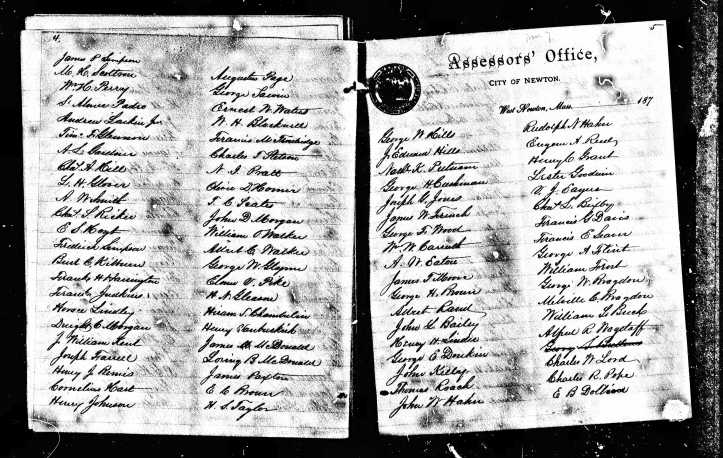 4.
James P. Simpson
M. H.
Wm H. Perry
S. Padro
Andrew Larkin Jr.
Timo. F. Glennon
A. L. Gardner
Chas. A. Kell
L. H. Glover
A. W. Smith
Chas. S. Ricker
E. S. Hoyt
Frederic Simpson
Burt E. Kilburn
Frank H. Harrington
Frank Judkins
Horace Lindley
Dwight E. Morgan
J. William Kent
Joseph Farrell
Henry J. Bemis
Cornelius Hart
Henry Johnson
Augustus Page
George Sawin
Ernest W. Waters
W. H. Blackwell
Francis M.
Charles F. Stetson
N. I. Pratt
Olive D. Homer
F. C. Teates
John D. Morgan
William O. Walker
Albert C. Walker
George W. Glynne
Elmer O. Pike
H. N. Gleason
Hiram S. Chamberlin
Henry Vanbuskirk
James McDonald
Loring B. McDonald
James Paxton
E. C. Brown
H. S. Taylor
5
Assessors' Office,
CITY OF NEWTON.
West Newton, Mass. 187
George W. Hills
J. Edward Hills
Nath. K. Putnam
George H. Cushman
Joseph C. Jones
James W. French
George F. Wood
W. W.
A. W. Eaton
James F. Moore
George H. Brown
Albert Rand
John L. Bailey
Henry H. Linder
George E. Durkin
John Kelley
Thomas Roach
John W. Hahn
Rudolph N. Hahn
Eugene A. Reed
Henry C. Grant
Lester Goodwin
N. J. Eagers
Chas. L. Bixby
Francis G. Davis
Francis E. Seaver
George A. Flint
William Frost
George W. Bragdon
Melville C. Bragdon
William L. Beck
Alfred R. Wagstaff
George
Charles W. Lord
Charles R. Pope
E B Dolliver